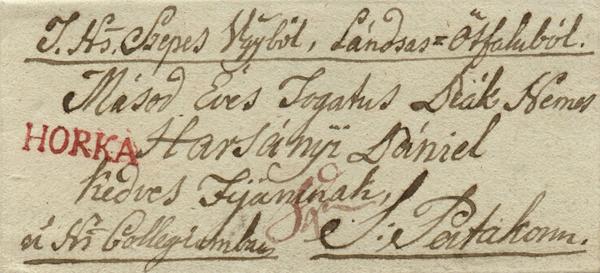 T. Ns. Szepes Vgyböl, Lándsas=Ötfaluböl.
Másod Éves Togatus Deák Nemes
HORKA Harsányi Dániel
kedves Fijamnak,
a' Ns Collegiumban S. Patakonn.